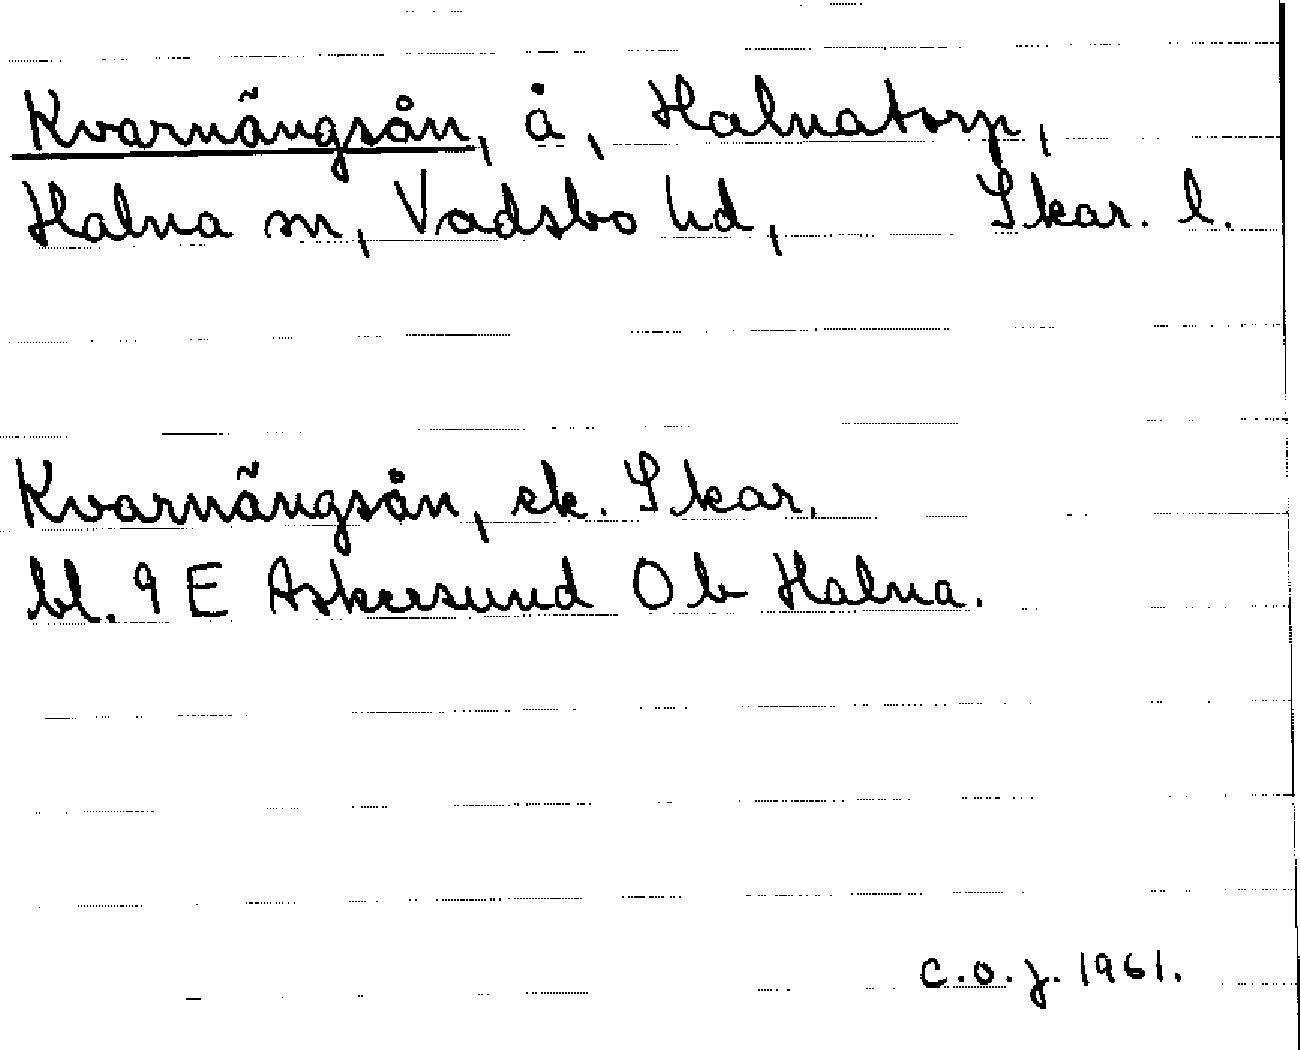 Kvarnängsån, å, Halnatorp,
Halna sn, Vadsbo hd, Skar. l.
Kvarnängsån, ek. Skar.
bl. 9 E Askersund O b Halna.
C.O.J. 1961.